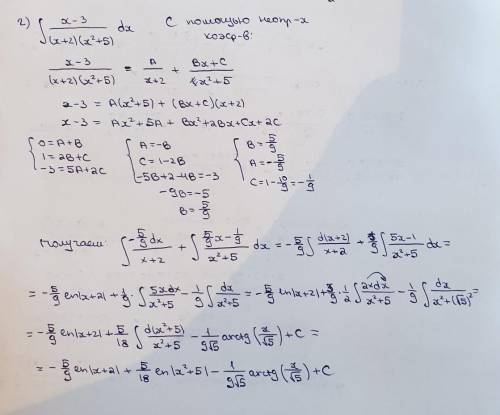 2) ∫ (x-3)/((x+2)(x²+5)) dx С помощью неопр-х коэф-в:
(x-3)/((x+2)(x²+5)) = A/(x+2) + (Bx+C)/(x²+5)
x-3 = A(x²+5) + (Bx+C)(x+2)
x-3 = Ax²+5A + Bx²+2Bx+Cx+2C
{ 0=A+B { A=-B { B=5/9
{ 1=2B+C { C=1-2B { A=-5/9
{ -3=5A+2C { -5B+2-4B=-3 { C=1-10/9=-1/9
-9B=-5
B=5/9
Получаем: ∫ (-5/9 dx)/(x+2) + ∫ (5/9 x - 1/9)/(x²+5) dx = -5/9 ∫ d(x+2)/(x+2) + 1/9 ∫ (5x-1)/(x²+5) dx =
= -5/9 ln|x+2| + 1/9 · ∫ 5xdx/(x²+5) - 1/9 ∫ dx/(x²+5) = -5/9 ln|x+2| + 5/9 · 1/2 ∫ 2xdx/(x²+5) - 1/9 ∫ dx/(x²+(√5)²) =
= -5/9 ln|x+2| + 5/18 ∫ d(x²+5)/(x²+5) - 1/(9√5) arctg(x/√5) + C =
= -5/9 ln|x+2| + 5/18 ln|x²+5| - 1/(9√5) arctg(x/√5) + C